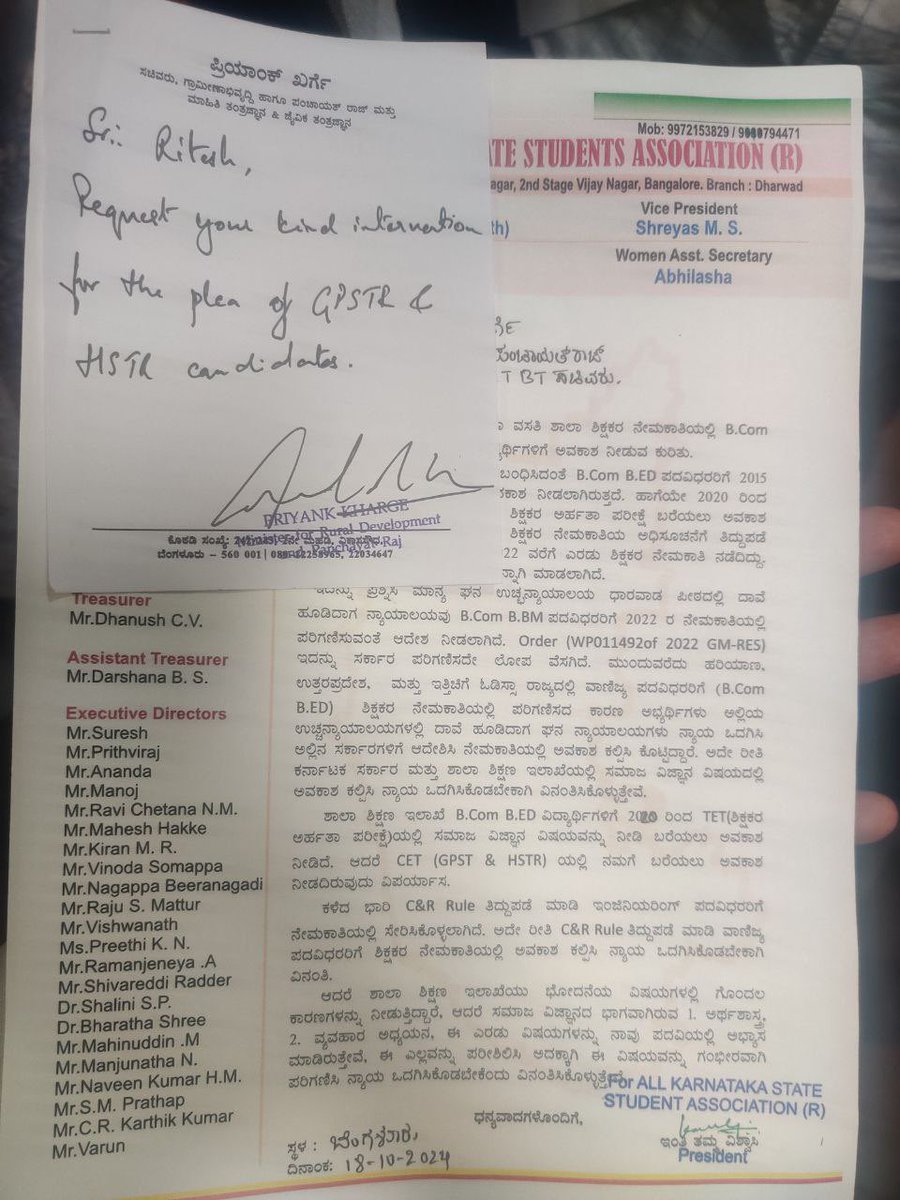 ಪ್ರಿಯಾಂಕ್ ಖರ್ಗೆ
ಸಚಿವರು, ಗ್ರಾಮೀಣಾಭಿವೃದ್ಧಿ ಹಾಗೂ ಪಂಚಾಯತ್ ರಾಜ್ ಮತ್ತು
ಮಾಹಿತಿ ತಂತ್ರಜ್ಞಾನ & ಜೈವಿಕ ತಂತ್ರಜ್ಞಾನ
Sri: Ritesh,
Request your kind intervention
for the plea of GPSTR &
HSTR candidates.
PRIYANK KHARGE
Minister for Rural Development
and Panchayat Raj
ಕೊಠಡಿ ಸಂಖ್ಯೆ:
ಬೆಂಗಳೂರು – 560 001 22034647
Mob: 9972153829 /
TE STUDENTS ASSOCIATION (R)
agar, 2nd Stage Vijay Nagar, Bangalore. Branch : Dharwad
Vice President
th) Shreyas M. S.
Women Asst. Secretary
Abhilasha
ರ್ಗೆ
ಪಂಚಾಯತ್ ರಾಜ್
T BT ಸಚಿವರು.
ವಸತಿ ಶಾಲಾ ಶಿಕ್ಷಕರ ನೇಮಕಾತಿಯಲ್ಲಿ B.Com
ದ್ಯಾರ್ಥಿಗಳಿಗೆ ಅವಕಾಶ ನೀಡುವ ಕುರಿತು.
ಬಂಧಿಸಿದಂತೆ B.Com B.ED ಪದವಿಧರರಿಗೆ 2015
ಕಾಶ ನೀಡಲಾಗಿರುತ್ತದೆ. ಹಾಗೆಯೇ 2020 ರಿಂದ
ಶಿಕ್ಷಕರ ಅರ್ಹತಾ ಪರೀಕ್ಷೆ ಬರೆಯಲು ಅವಕಾಶ
ಶಿಕ್ಷಕರ ನೇಮಕಾತಿಯ ಅಧಿಸೂಚನೆಗೆ ತಿದ್ದುಪಡೆ
22 ವರೆಗೆ ಎರಡು ಶಿಕ್ಷಕರ ನೇಮಕಾತಿ ನಡೆದಿದ್ದು.
ಮಾಡಲಾಗಿದೆ.
ಇದನ್ನು ಪ್ರಶ್ನಿಸಿ ಮಾನ್ಯ ಘನ ಉಚ್ಛನ್ಯಾಯಾಲಯ ಧಾರವಾಡ ಪೀಠದಲ್ಲಿ ದಾವೆ
ಹೂಡಿದಾಗ ನ್ಯಾಯಾಲಯವು B.Com B.BM ಪದವಿಧರರಿಗೆ 2022 ರ ನೇಮಕಾತಿಯಲ್ಲಿ
ಪರಿಗಣಿಸುವಂತೆ ಆದೇಶ ನೀಡಲಾಗಿದೆ. Order (WP011492of 2022 GM-RES)
ಇದನ್ನು ಸರ್ಕಾರ ಪರಿಗಣಿಸದೇ ಲೋಪ ವೆಸಗಿದೆ. ಮುಂದುವರೆದು ಹರಿಯಾಣ,
ಉತ್ತರಪ್ರದೇಶ, ಮತ್ತು ಇತ್ತಿಚಿಗೆ ಓಡಿಸ್ಸಾ ರಾಜ್ಯದಲ್ಲಿ ವಾಣಿಜ್ಯ ಪದವಿಧರರಿಗೆ (B.Com
B.ED) ಶಿಕ್ಷಕರ ನೇಮಕಾತಿಯಲ್ಲಿ ಪರಿಗಣಿಸದ ಕಾರಣ ಅಭ್ಯರ್ಥಿಗಳು ಅಲ್ಲಿಯ
ಉಚ್ಛನ್ಯಾಯಾಲಯಗಳಲ್ಲಿ ದಾವೆ ಹೂಡಿದಾಗ ಘನ ನ್ಯಾಯಾಲಯಗಳು ನ್ಯಾಯ ಒದಗಿಸಿ
ಅಲ್ಲಿನ ಸರ್ಕಾರಗಳಿಗೆ ಆದೇಶಿಸಿ ನೇಮಕಾತಿಯಲ್ಲಿ ಅವಕಾಶ ಕಲ್ಪಿಸಿ ಕೊಟ್ಟಿದ್ದಾರೆ. ಅದೇ ರೀತಿ
ಕರ್ನಾಟಕ ಸರ್ಕಾರ ಮತ್ತು ಶಾಲಾ ಶಿಕ್ಷಣ ಇಲಾಖೆಯಲ್ಲಿ ಸಮಾಜ ವಿಜ್ಞಾನ ವಿಷಯದಲ್ಲಿ
ಅವಕಾಶ ಕಲ್ಪಿಸಿ ನ್ಯಾಯ ಒದಗಿಸಿಕೊಡಬೇಕಾಗಿ ವಿನಂತಿಸಿಕೊಳ್ಳುತ್ತೇವೆ.
ಶಾಲಾ ಶಿಕ್ಷಣ ಇಲಾಖೆ B.Com B.ED ವಿದ್ಯಾರ್ಥಿಗಳಿಗೆ 2020 ರಿಂದ TET(ಶಿಕ್ಷಕರ
ಅರ್ಹತಾ ಪರೀಕ್ಷೆ)ಯಲ್ಲಿ ಸಮಾಜ ವಿಜ್ಞಾನ ವಿಷಯವನ್ನು ನೀಡಿ ಬರೆಯಲು ಅವಕಾಶ
ನೀಡಿದೆ. ಆದರೆ CET (GPST & HSTR) ಯಲ್ಲಿ ನಮಗೆ ಬರೆಯಲು ಅವಕಾಶ
ನೀಡದಿರುವುದು ವಿಪರ್ಯಾಸ.
ಕಳೆದ ಭಾರಿ C&R Rule ತಿದ್ದುಪಡೆ ಮಾಡಿ ಇಂಜಿನಿಯರಿಂಗ್ ಪದವಿಧರರಿಗೆ
ನೇಮಕಾತಿಯಲ್ಲಿ ಸೇರಿಸಿಕೊಳ್ಳಲಾಗಿದೆ. ಅದೇ ರೀತಿ C&R Rule ತಿದ್ದುಪಡೆ ಮಾಡಿ ವಾಣಿಜ್ಯ
ಪದವಿಧರರಿಗೆ ಶಿಕ್ಷಕರ ನೇಮಕಾತಿಯಲ್ಲಿ ಅವಕಾಶ ಕಲ್ಪಿಸಿ ನ್ಯಾಯ ಒದಗಿಸಿಕೊಡಬೇಕಾಗಿ
ವಿನಂತಿ.
ಆದರೆ ಶಾಲಾ ಶಿಕ್ಷಣ ಇಲಾಖೆಯು ಭೋದನೆಯ ವಿಷಯಗಳಲ್ಲಿ ಗೊಂದಲ
ಕಾರಣಗಳನ್ನು ನೀಡುತ್ತಿದ್ದಾರೆ, ಆದರೆ ಸಮಾಜ ವಿಜ್ಞಾನದ ಭಾಗವಾಗಿರುವ 1. ಅರ್ಥಶಾಸ್ತ್ರ
2. ವ್ಯವಹಾರ ಅಧ್ಯಯನ, ಈ ಎರಡು ವಿಷಯಗಳನ್ನು ನಾವು ಪದವಿಯಲ್ಲಿ ಅಭ್ಯಾಸ
ಮಾಡಿರುತ್ತೇವೆ, ಈ ಎಲ್ಲವನ್ನು ಪರಿಶೀಲಿಸಿ ಅದಕ್ಕಾಗಿ ಈ ವಿಷಯವನ್ನು ಗಂಭೀರವಾಗಿ
ಪರಿಗಣಿಸಿ ನ್ಯಾಯ ಒದಗಿಸಿಕೊಡಬೇಕೆಂದು ವಿನಂತಿಸಿಕೊಳ್ಳುತ್ತೇವೆ.
Treasurer
Mr.Dhanush C.V.
Assistant Treasurer
Mr.Darshana B. S.
Executive Directors
Mr.Suresh
Mr.Prithviraj
Mr.Ananda
Mr.Manoj
Mr.Ravi Chetana N.M.
Mr.Mahesh Hakke
Mr.Kiran M. R.
Mr.Vinoda Somappa
Mr.Nagappa Beeranagadi
Mr.Raju S. Mattur
Mr.Vishwanath
Ms.Preethi K. N.
Mr.Ramanjeneya .A
Mr.Shivareddi Radder
Dr.Shalini S.P.
Dr.Bharatha Shree
Mr.Mahinuddin .M
Mr.Manjunatha N.
Mr.Naveen Kumar H.M.
Mr.S.M. Prathap
Mr.C.R. Karthik Kumar
Mr.Varun
ಧನ್ಯವಾದಗಳೊಂದಿಗೆ,
For ALL KARNATAKA STATE
STUDENT ASSOCIATION (R)
ಇಂತಿ ತಮ್ಮ ವಿಶ್ವಾಸಿ
President
ಸ್ಥಳ : ಬೆಂಗಳೂರು,
ದಿನಾಂಕ: 18-10-2024